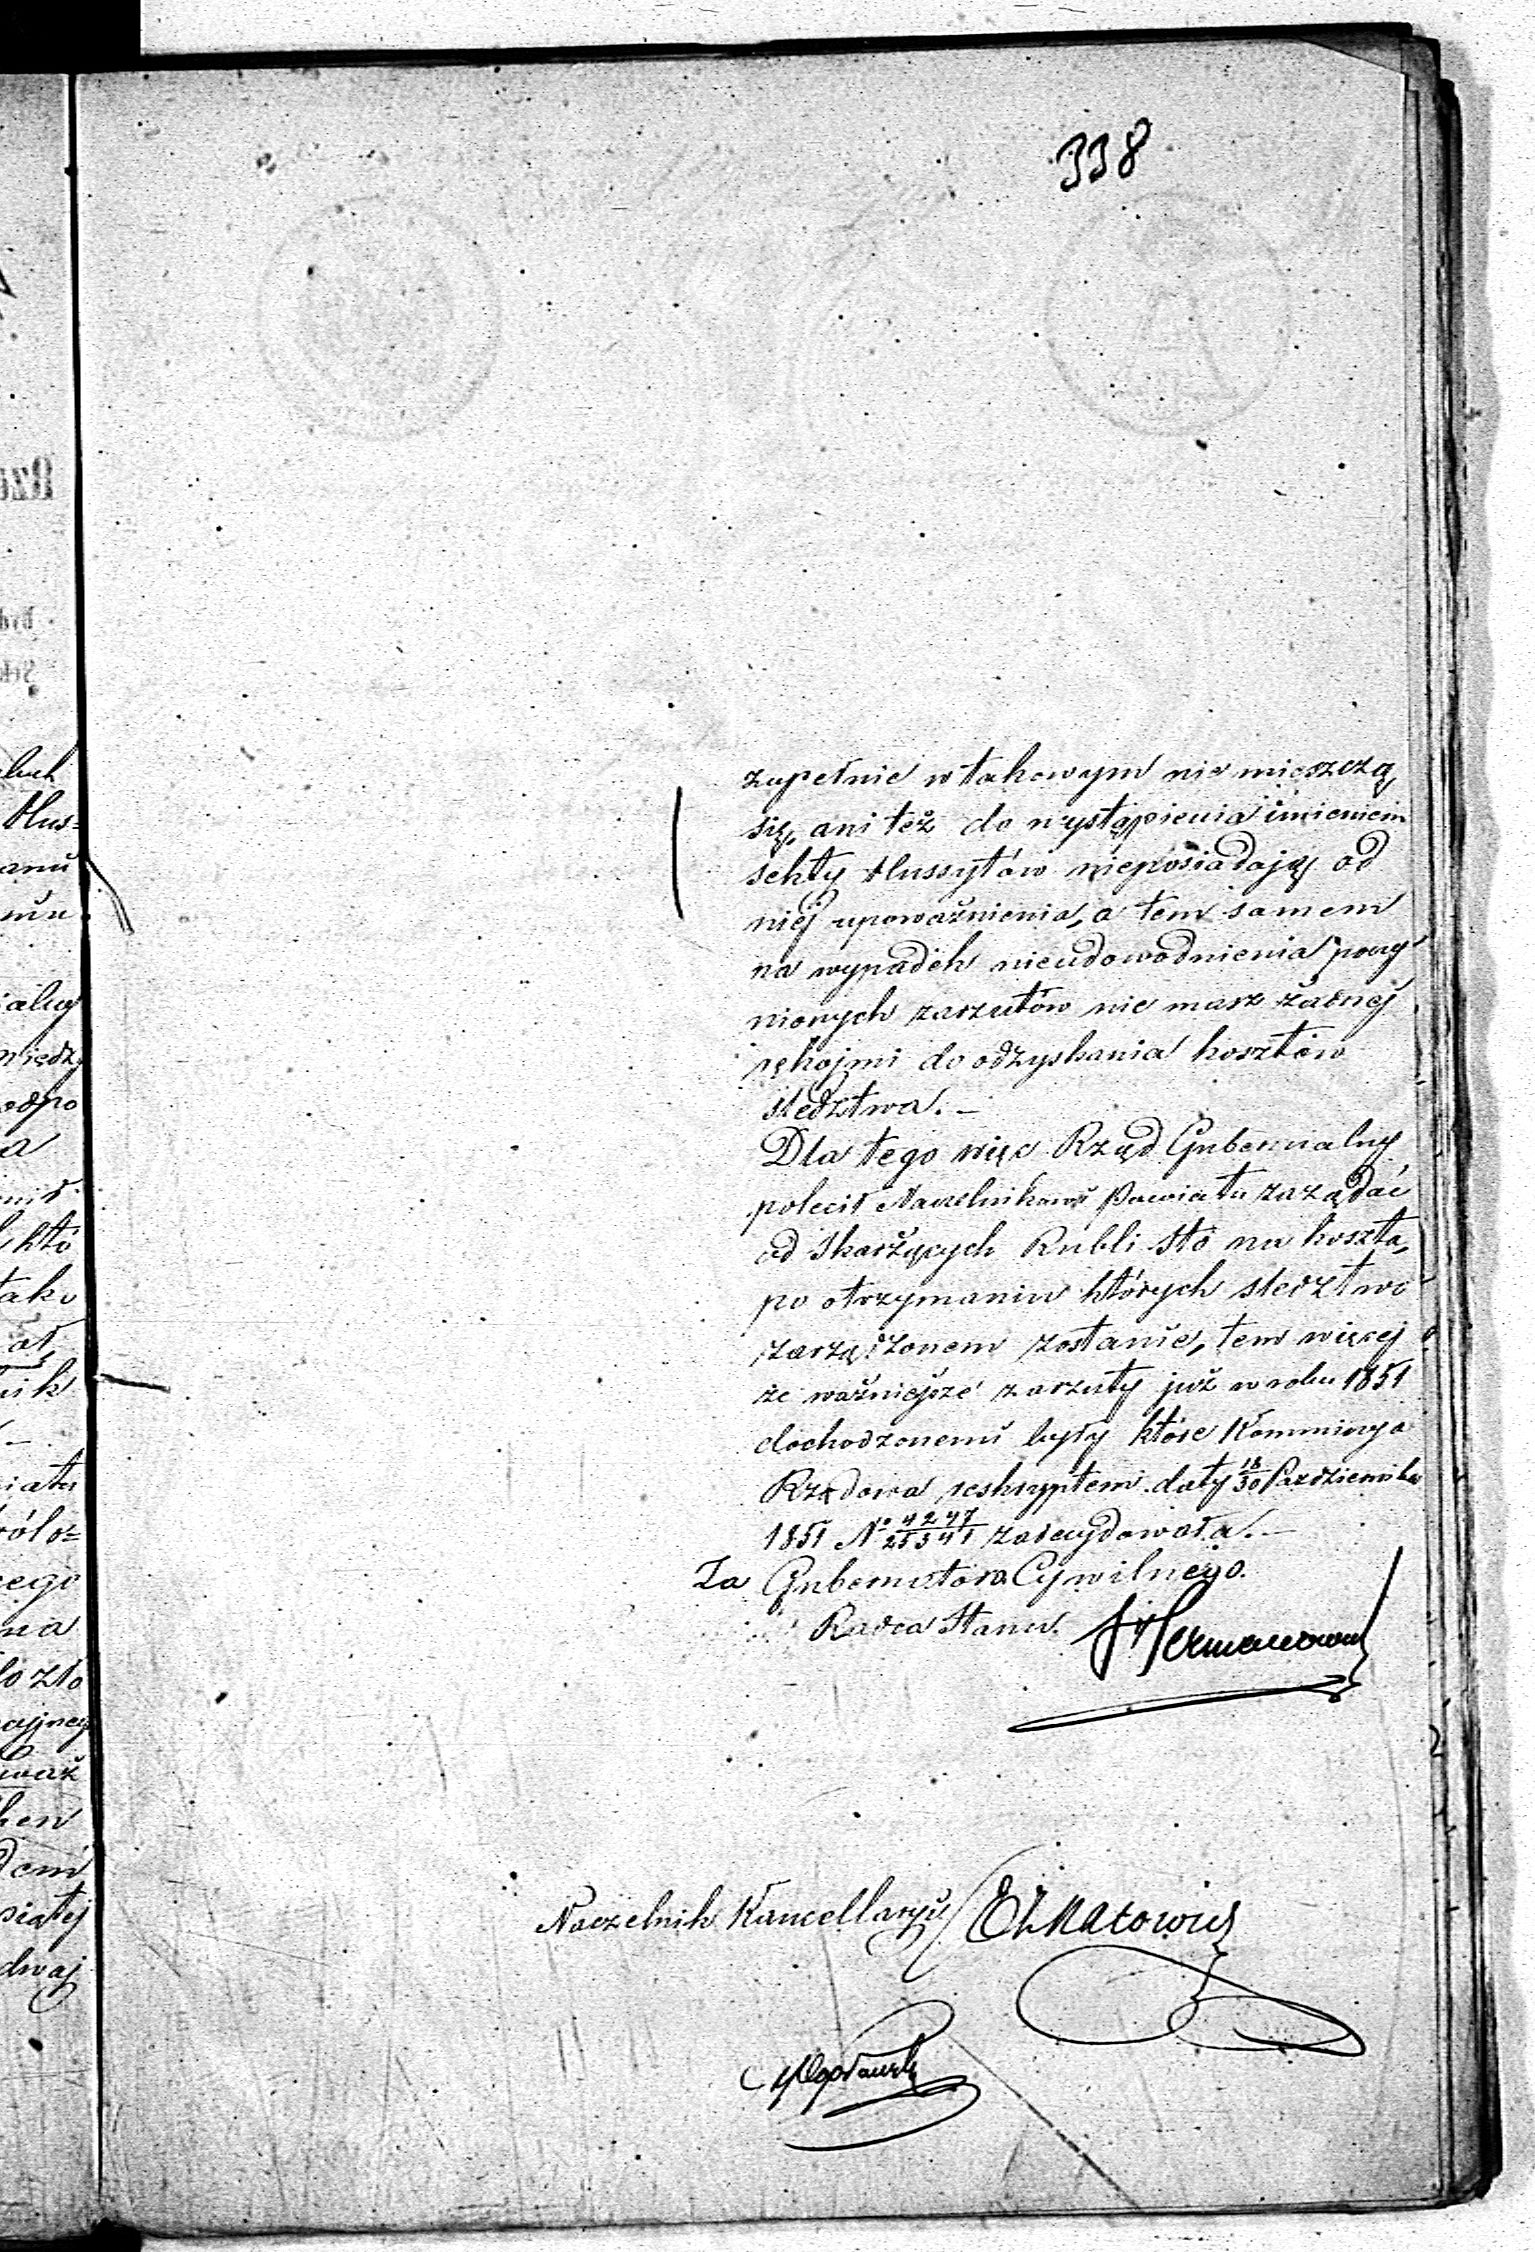 338
zupełnie w takowym nie mieszczą
się, ani też do wystąpienia imieniem
sekty Hussytów nieposiadają od
niej upoważnienia, a tem samem
na wypadek nieudowodnienia poczy
nionych zarzutów nie masz żadnej
rękojmi do odzyskania kosztów
śledztwa. —
Dla tego więc Rząd Gubernialny
polecił Naczelnikowi Powiatu zażądać
od skarżących Rubli sto na koszta,
po otrzymaniu których śledztwo
zarządzonem zostanie, tem więcej
że ważniejsze zarzuty już w roku 1851
dochodzonemi były które Kommissya
Rządowa reskryptem daty 18/30 Października
1851 No 4247/25341 zadecydowała. —
Za Gubernatora Cywilnego.
Radca Stanu.
Naczelnik Kancellaryi